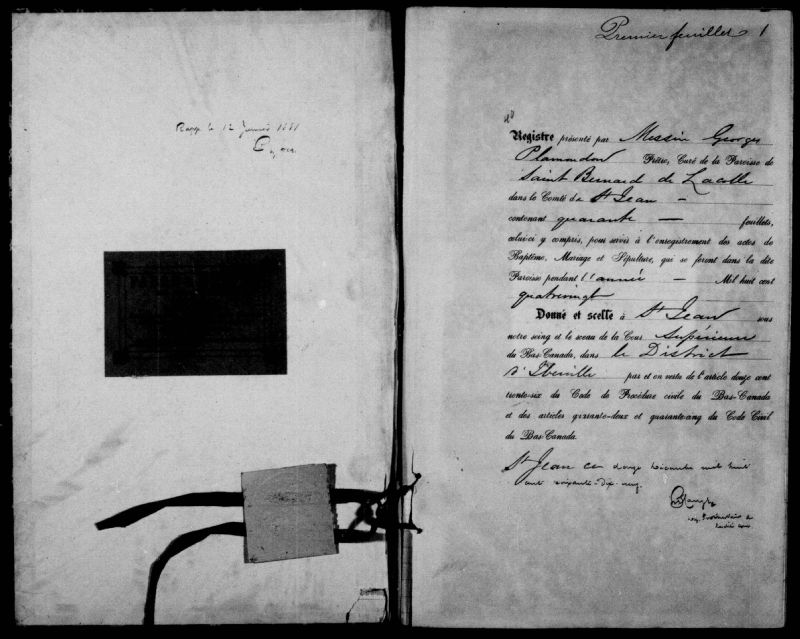 Rapp. le 12 Janvier 1881
Premier feuillet 1
Registre présenté par Messire Georges
Plamondon Prêtre, Curé de la Paroisse de
Saint Bernard de Lacolle
dans le Comté de St Jean —
contenant quarante — feuillets,
celui-ci y compris, pour servir à l'enregistrement des actes de
Baptême, Mariage et Sépulture, qui se feront dans la dite
Paroisse pendant l'année — Mil huit cent
quatrevingt
Donné et scellé à St Jean sous
notre seing et le sceau de la Cour Supérieure
du Bas-Canada, dans le District
d'Iberville par et en vertu de l'article douze cent
trente-six du Code de Procédure civile du Bas-Canada
et des articles quarante-deux et quarante-cinq du Code Civil
du Bas-Canada.
St Jean ce douze Décembre mil huit
cent soixante-dix-neuf.